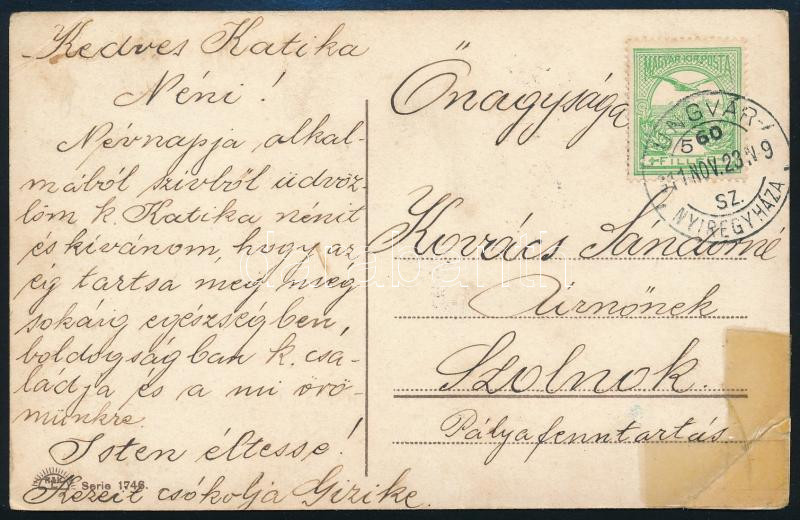 Kedves Katika
Néni!
Névnapja alkal-
mából szivből üdvöz-
löm k. Katika nénit
és kívánom, hogy az
ég tartsa meg még
sokáig egészségben,
boldogságban k. csa-
ládja és a mi örö-
münkre.
Isten éltesse!
Kezeit csókolja Gizike.
Serie 1746.
Önagysága
Kovács Sándorné
Úrnőnek
Szolnok.
Pályafenntartás
MAGYAR KIR. POSTA
FILLÉR
UNGVÁR-
560
911 NOV. 23. N 9
SZ.
NYIREGYHÁZA
darabanth